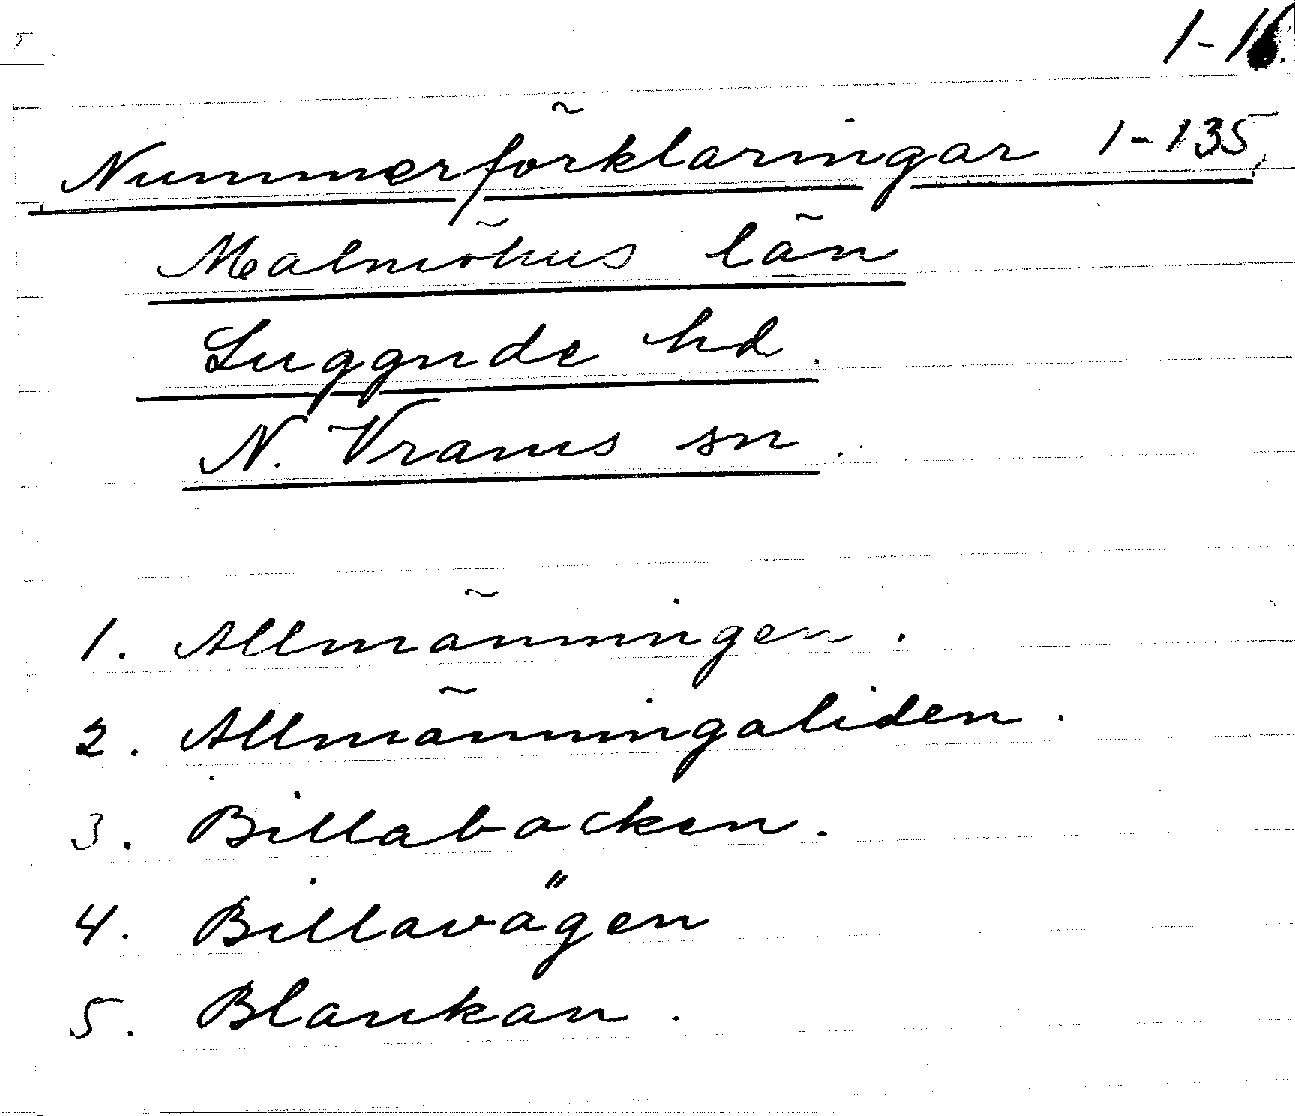 1-16.
Nummerförklaringar 1-135,
Malmöhus län
Luggude hd.
N. Vrams sn.
1. Allmänningen.
2. Allmänningaliden.
3. Billabacken.
4. Billavägen
5. Blankan.